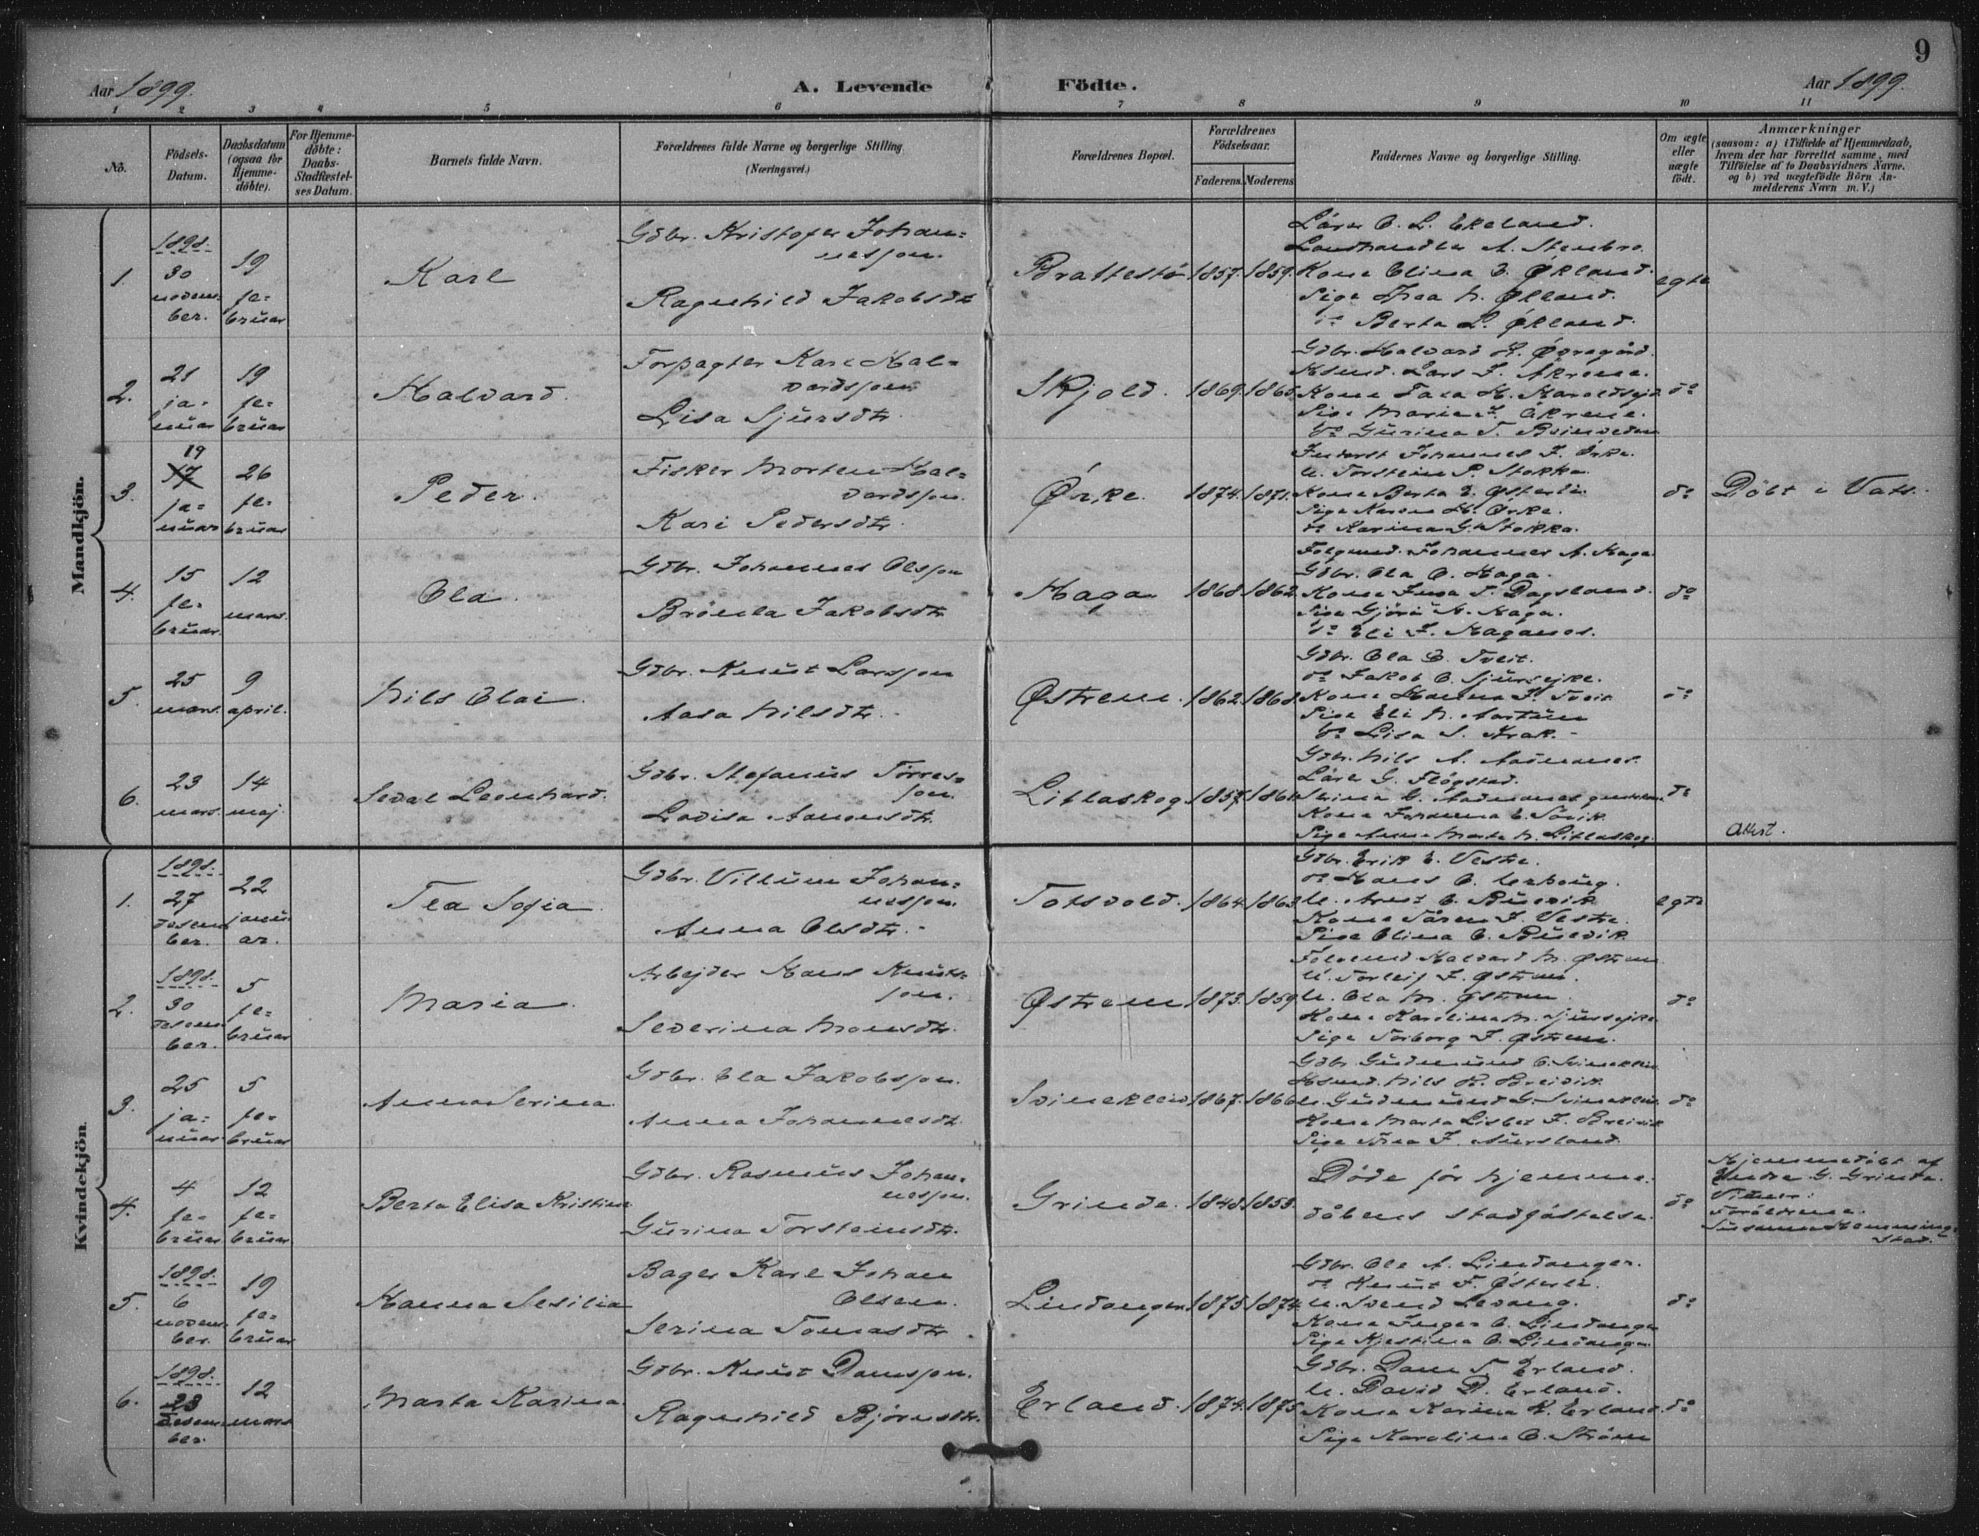 9
Aar 1899.
A. Levende Födte.
Aar 1899.
1 2 3 4 5 6 7 8 9 10 11
No.
Födsels-Datum.
Daabsdatum (ogsaa for Hjemme-döbte).
For Hjemme-döbte: Daabs-Stadfæstel-ses Datum.
Barnets fulde Navn.
Forældrenes fulde Navne og borgerlige Stilling (Næringsvei.)
Forældrenes Bopæl.
Forældrenes Födselsaar.
Faderens. Moderens.
Faddernes Navne og borgerlige Stilling.
Om ægte eller uægte födt.
Anmærkninger
(saasom: a) i Tilfælde af Hjemmedaab, hvem der har forrettet samme, med Tilföielse af to Daabsvidners Navne, og b) ved uægtefödte Börn An-melderens Navn m. V.)
Mandkjön.
1
1898.
30 november.
19 februar
Karl
Gdbr. Kristofer Johan=
nesson.
Ragnhild Jakobsdtr
Brattestø
1857. 1859.
Lärer O. L. Ekeland.
Landhandler A. Stenbro.
Kone Elina E. Økland.
Pige Thea N. Økland.
do Berta L. Økland.
egte
2.
21 januar
19 februar
Halvard.
Forpagter Karl Hal=
vardsson
Lisa Sjursdtr.
Skjold.
1869. 1865.
do
3.
19
17 januar
26 februar
Peder.
Fisker Morten Hal=
vardsson.
Kari Pedersdtr.
Ørke.
1874. 1871.
Inderst Johannes J. Ørke.
U. Torstein P. Stokka.
Kone Berta E. Østerli.
Pige Karen H. Ørke.
do Karina G. Stokka.
do
Döbt i Vats.
4.
15 februar
12 mars.
Ola.
Gdbr. Johannes Olsson
Brønla Jakobsdtr
Haga
1868. 1862.
Folgmd. Johannes A. Haga
Gdbr. Ola O. Haga.
Kone Inga T. Dagsland.
Pige Gjøri A. Haga.
do Eli J. Haganes.
do
5.
25 mars.
9 april.
Nils Olai
Gdbr. Knut Larsson
Aasa Nilsdtr.
Østrem.
1862. 1868.
Gdbr. Ola E. Tveit.
do Jakob O. Sjursejke.
Kone Hanna J. Tveit
Pige Eli N. Aartun
do Lisa S. Krak.
do
6.
23 mars
14 maj.
Seval Leonhard.
Gdbr. Stefanus Torres=
son.
Lovisa Amonsdtr.
Litlaskog
1857. 1861.
Gdbr. Nils A. Aadnanes.
Lärer G. Fløgstad.
Kone Johanna E. Sørvik.
Pige Anna Marta N. Litlaskog.
do
Attest.
Kvindekjön.
1.
1898.
27 desember.
22 januar.
Tea Sofia.
Gdbr. Villum Johan=
nesson.
Anna Olsdtr.
Totsvold.
1864. 1863.
Gdbr. Erik E. Vestre.
do Hans O.
Kone Søren J. Vestre.
Pige Olina O.
egte
2.
1898.
30 desember.
5 februar
Maria
Arbejder Hans Knuts=
son.
Severina Monsdtr.
Østrem
1873. 1859.
Folgmd Halvard M. Østrem
U. Torleif J. Østrem.
U. Ola M. Østrem.
Kone Karolina M. Sjursejke.
Pige Torborg J. Østrem.
do
3.
25 januar
5 februar
Anna Serina.
Gdbr. Ola Jakobsson.
Anna Johannesdtr.
Svineklein
1867. 1866.
Gdbr Gudmund O. Svineklein
Husmd. Nils K. Breivik.
U. Gudmund G. Svineklein.
Kone Marta Lisbet J. Breivik
do
4.
4 februar
12 februar
Berta Elisa Kristine
Gdbr. Rasmus Johan=
nesson.
Gurina Torsteinsdtr.
Grinde.
1848. 1853.
Døde før hjemme=
dåbens stadfästelse.
do
Hjemmedöbt af
Endre G. Grinde.
Vitner:
Foräldrene.
Susanna Hemming=
stad.
5.
1898.
6 november.
19 februar
Hanna Sesilia
Bager Karl Johan
Olsen.
Serina Tomasdtr.
Lindanger
1875. 1874.
Gdbr. Ole A. Lindanger.
do Knut T. Østerli.
U. Svend Levang.
Kone Inger O. Lindanger
Pige Kjestina O. Lindanger
do
6.
1898.
23 desember.
12 mars
Marta Karina
Gdbr. Knut Danesson.
Ragnhild Bjørnsdtr.
Erland.
1874. 1875.
Gdbr. Dane T. Erland.
U. David D. Erland.
Kone Karina K. Erland.
Pige Karolina O. Strøm
do